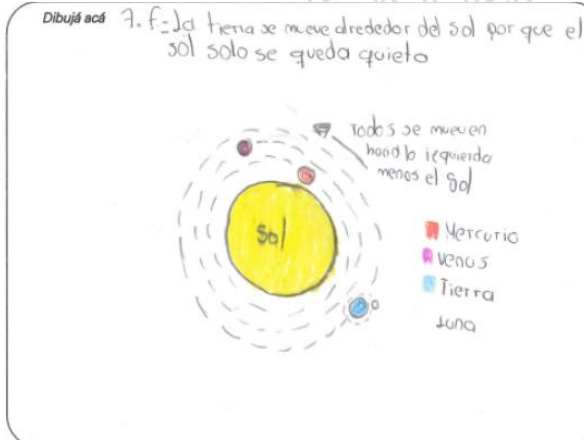 Dibujá acá
7. f.- La tierra se mueve alrededor del sol por que el
sol solo se queda quieto
Todos se mueven
hacia la izquierda
menos el sol
Sol
Mercurio
venus
Tierra
Luna